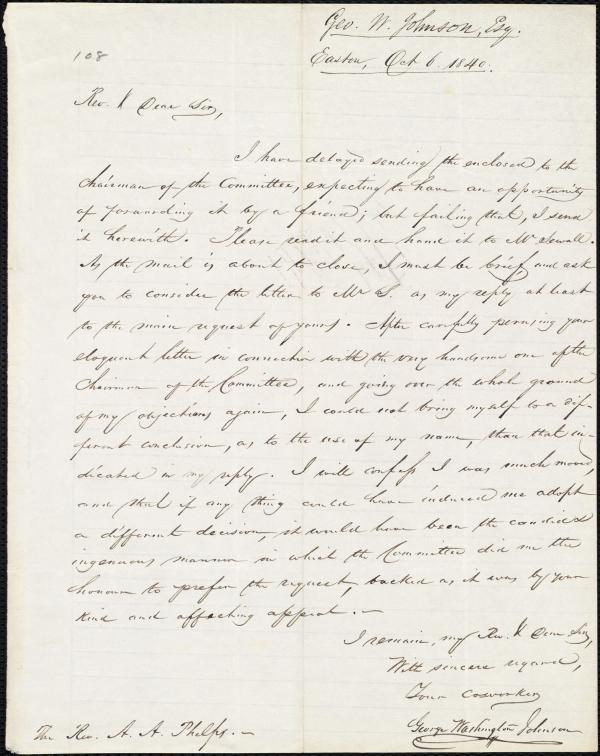 Geo. W. Johnson, Esq.
Easton, Oct 6. 1840.
108
Rev. & Dear Sir,
I have delayed sending the enclosed to the
Chairman of the Committee, expecting to have an opportunity
of forwarding it by a friend; but failing that, I send
it herewith. Please read it and hand it to Mr Sewall.
As the mail is about to close, I must be brief and ask
you to consider the letter to Mr S. as my reply at least
to the main request of yours. After carefully perusing your
eloquent letter in connection with the very handsome one of the
Chairman of the Committee, and going over the whole ground
of my objections again, I could not bring myself to a dif-
ferent conclusion, as to the use of my name, than that in-
dicated in my reply. I will confess I was much moved,
and that if any thing could have induced me adopt
a different decision, it would have been the candid &
ingenuous manner in which the Committee did me the
honour to prefer the request, backed as it was by your
kind and affecting appeal. —
I remain, my Rev. & Dear Sir,
With sincere regard,
Your coworker
George Washington Johnson
The Rev. A. A. Phelps. —